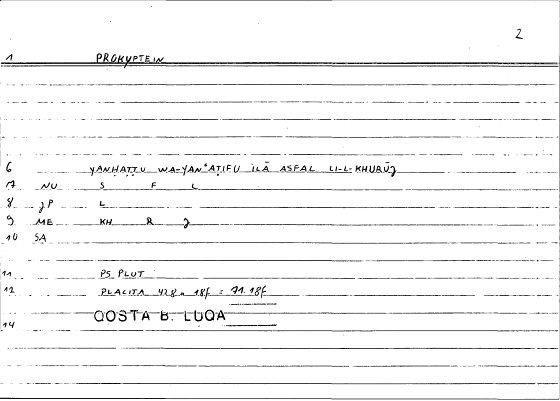 2
1 PROKYPTEIN
6 YANḤAṬṬU WA-YANʿAṬIFU ILĀ ASFAL LI-L-KHURŪJ
7 NU S F L
8 JP L
9 ME KH R J
10 SA
11 PS PLUT
12 PLACITA 428a 18f = 71.18f
QOSTA B. LUQA
14